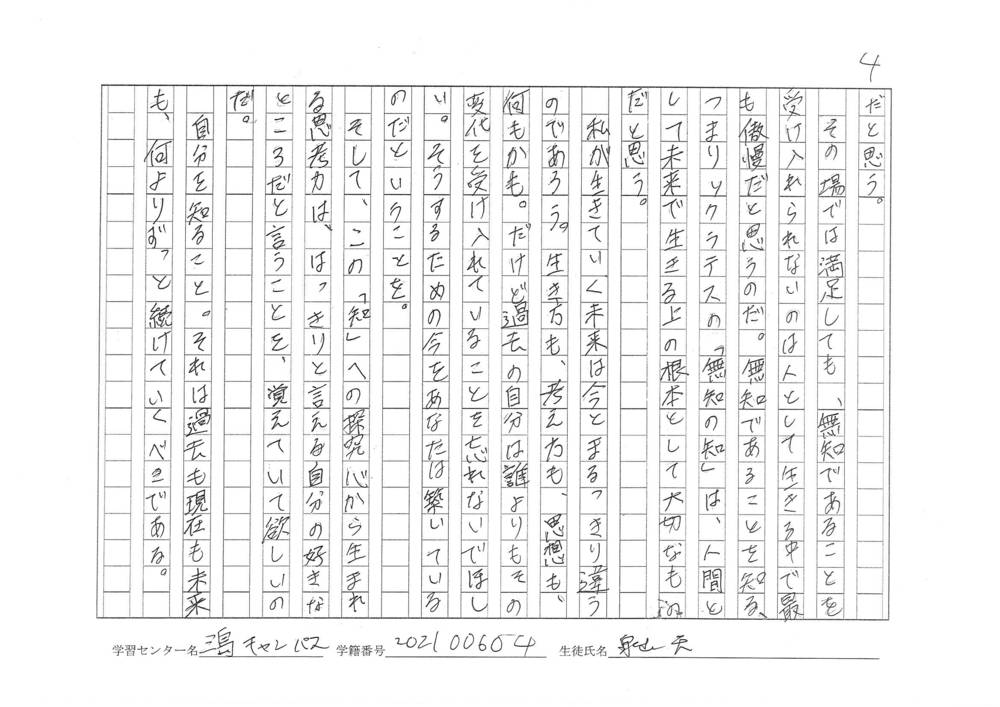 4
だと思う。
その場では満足しても、無知であることを
受け入れられないのは人として生きる中で最
も傲慢だと思うのだ。無知であることを知る、
つまりソクラテスの「無知の知」は、人間と
して未来で生きる上の根本として大切なもの
だと思う。
私が生きていく未来は今とまるっきり違う
のであろう。生き方も、考え方も、思想も、
何もかも。だけど過去の自分は誰よりもその
変化を受け入れていることを忘れないでほし
い。そうするための今をあなたは築いている
のだということを。
そして、この「知」への探究心から生まれ
る思考力は、はっきりと言える自分の好きな
ところだと言うことを、覚えていて欲しいの
だ。
自分を知ること。それは過去も現在も未来
も、何よりずっと続けていくべきである。
学習センター名 三島キャンパス 学籍番号 2021006054 生徒氏名